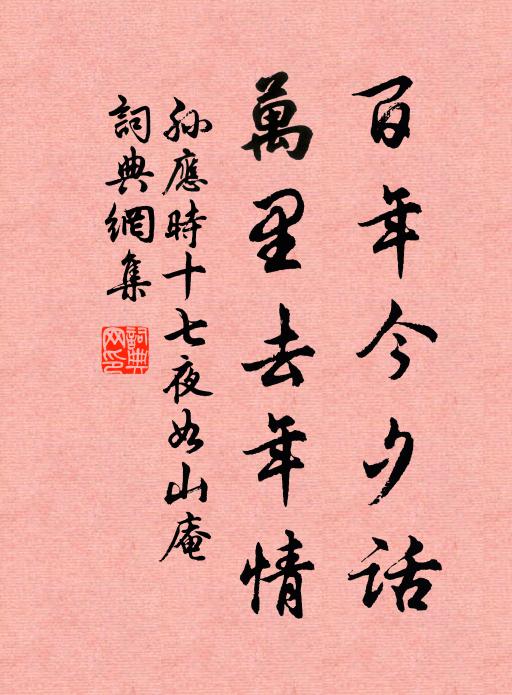 百年今夕話
萬里去年情
孫應時十七夜如山庵
詞典網集
詞典網印